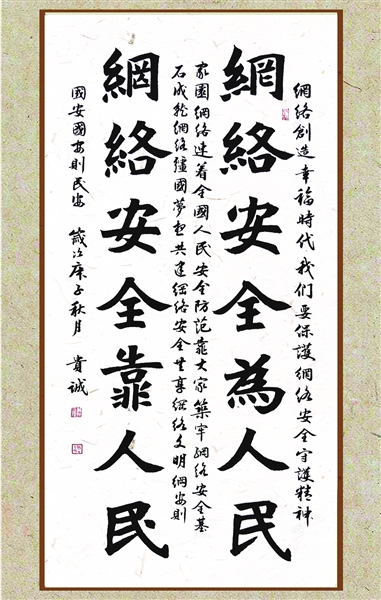 網络創造幸福時代我们要保護網络安全守護精神
網絡安全為人民
家園網络連着全國人民安全防范靠大家築牢網络安全基
石成就網络彊國夢想共建網络安全共享網络文明網安則
網絡安全靠人民
國安國安則民安 歲次庚子秋月 貴诚